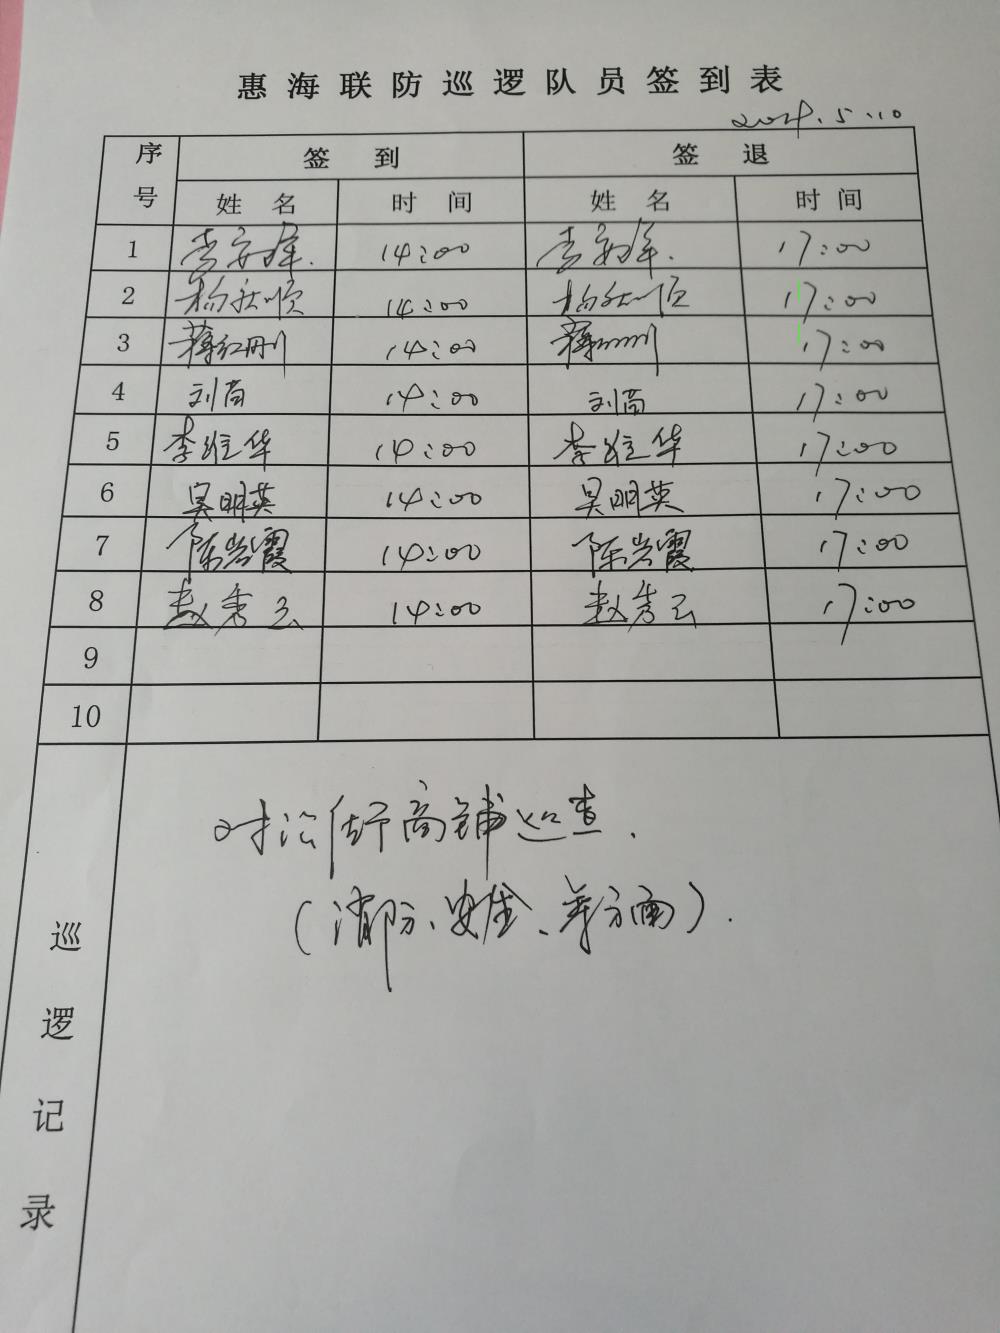 惠海联防巡逻队员签到表
2021.5.10
序号 签到 签退
姓名 时间 姓名 时间
1 李安峰. 14:00 李安峰. 17:00
2 杨秋顺 14:00 杨秋顺 17:00
3 蒋红刚 14:00 蒋 17:00
4 刘苗 14:00 刘苗 17:00
5 李维华 14:00 李维华 17:00
6 吴明英 14:00 吴明英 17:00
7 陈岩霞 14:00 陈岩霞 17:00
8 赵秀云 14:00 赵秀云 17:00
9
10
巡逻记录
对沿街商铺巡查.
(消防、安全、等方面).